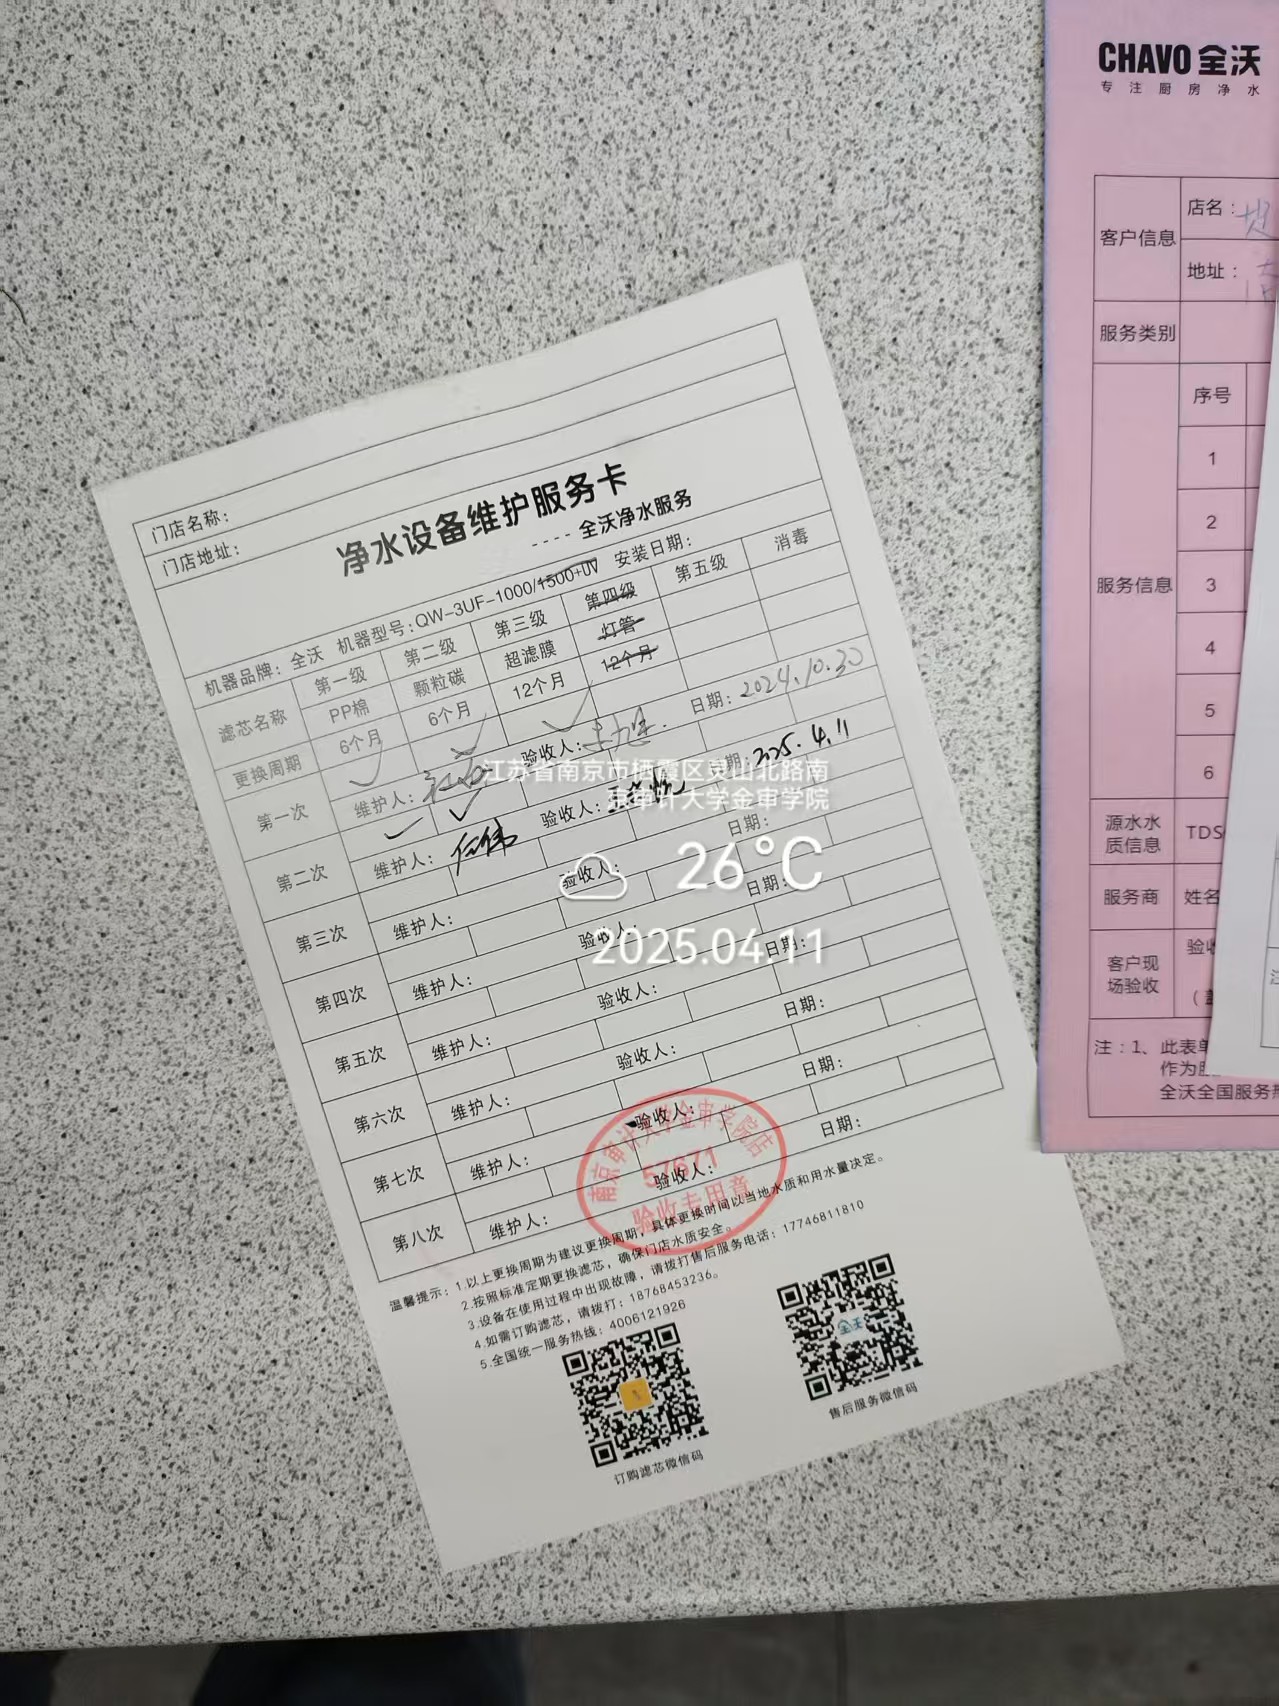 门店名称：
门店地址：
净水设备维护服务卡
---- 全沃净水服务
机器品牌：全沃 机器型号：QW-3UF-1000/1500+UV 安装日期：
滤芯名称 第一级 第二级 第三级 第四级 第五级 消毒
PP棉 颗粒碳 超滤膜 灯管
更换周期 6个月 6个月 12个月 12个月
第一次 ✓ ✓ ✓
维护人： 验收人： 日期：2024.10.30
第二次 ✓ ✓
维护人： 验收人： 日期：2025.4.11
第三次 维护人： 验收人： 日期：
第四次 维护人： 验收人： 日期：
第五次 维护人： 验收人： 日期：
第六次 维护人： 验收人： 日期：
第七次 维护人： 验收人： 日期：
第八次 维护人： 验收人： 日期：
温馨提示：1.以上更换周期为建议更换周期，具体更换时间以当地水质和用水量决定。
2.按照标准定期更换滤芯，确保门店水质安全。
3.设备在使用过程中出现故障，请拨打售后服务电话：17746811810
4.如需订购滤芯，请拨打：18768453236。
5.全国统一服务热线：4006121926
订购滤芯微信码
售后服务微信码
全沃
南京审计大学金审学院店
57671
验收专用章
江苏省南京市栖霞区灵山北路南
京审计大学金审学院
26°C
2025.04.11
CHAVO 全沃
专注厨房净水
客户信息
店名：
地址：
服务类别
服务信息
序号
1
2
3
4
5
6
源水水
质信息
TDS
服务商
姓名
客户现
场验收
验收
注：1、此表单
作为
全沃全国服务热